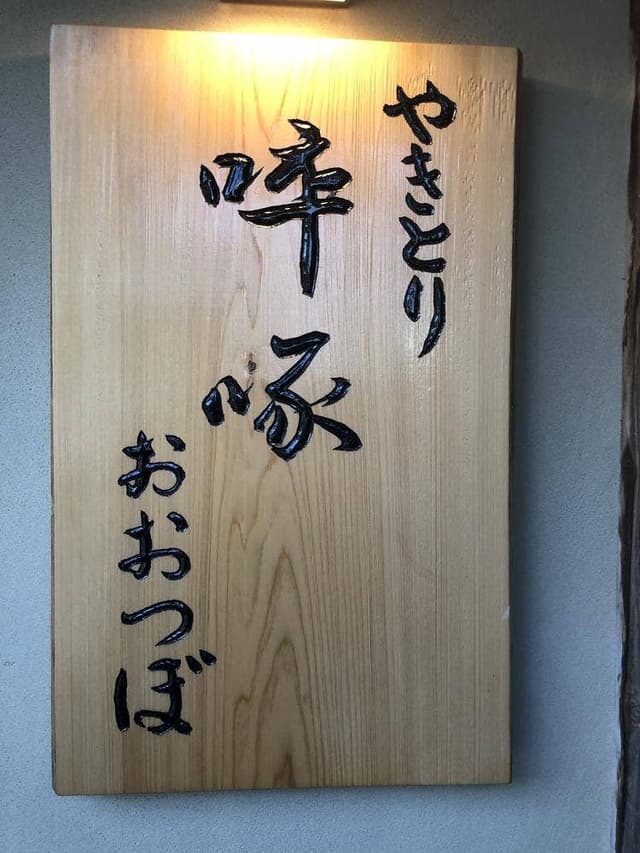 やきとり
啐啄
おおつぼ